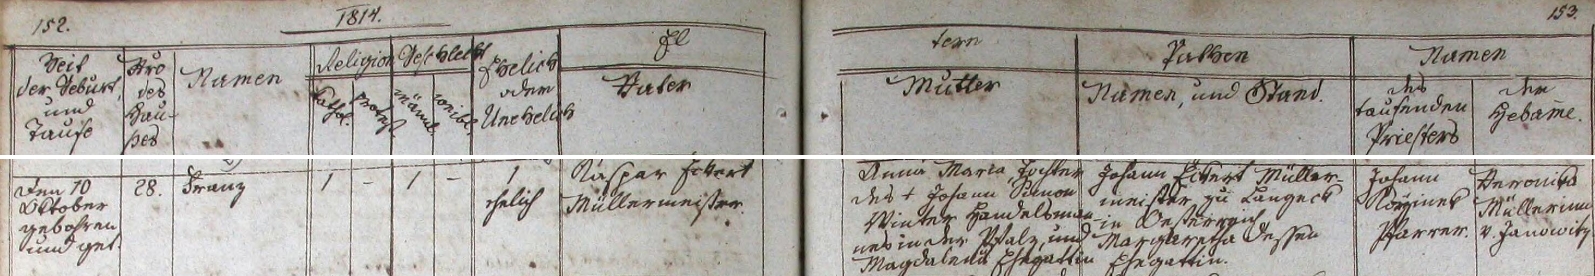 152.
1814.
153.
Zeit der Geburt, und Taufe
Nro des Hauses
Namen
Religion
Kathol.
Protest
Geschlecht
Männl.
weibl.
Ehelich oder Unehelich
El
tern
Vater
Mutter
Pathen
Namen, und Stand.
Namen
des taufenden Priesters
der Hebame.
Den 10
Oktober
gebohren
und get.
28.
Franz
1
-
1
-
1
ehelich
Kaspar Eckert
Müllermeister
Anna Maria Tochter
des + Johann Simon
Winter Handelsman
nes in der Pfalz, und
Magdalena Ehegattin
Johann Eckert Müller-
meister zu Langeck
in Oesterreich
Margaretha dessen
Ehegattin.
Johann
Pfarrer.
Veronika
Müllerinn
v. Janowitz